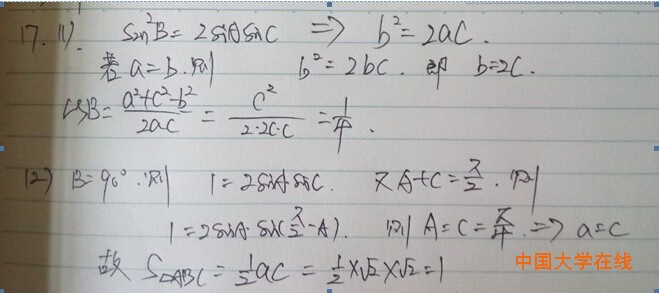 17. (1). Sin²B = 2sinA sinC ⇒ b² = 2ac.
若 a=b. 则 b² = 2bc. 即 b=2c.
cosB = (a²+c²-b²)/(2ac) = c²/(2·2c·c) = 1/4.
(2) B=90°. 则 1 = 2sinA·sinC. 又 A+C = π/2. 则
1 = 2sinA·sin(π/2-A). 则 A=C=π/4. ⇒ a=c
故 S△ABC = 1/2 ac = 1/2 × √2 × √2 = 1
中国大学在线